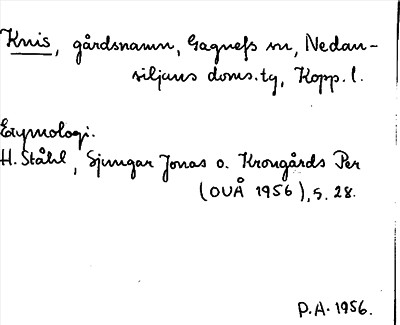 Knis, gårdsnamn, Gagnefs sn, Nedan-
siljans doms.tg, Kopp. l.
Etymologi.
H. Ståhl, Sjungar Jonas o. Krongårds Per
(OUÅ 1956), s. 28.
P.A. 1956.